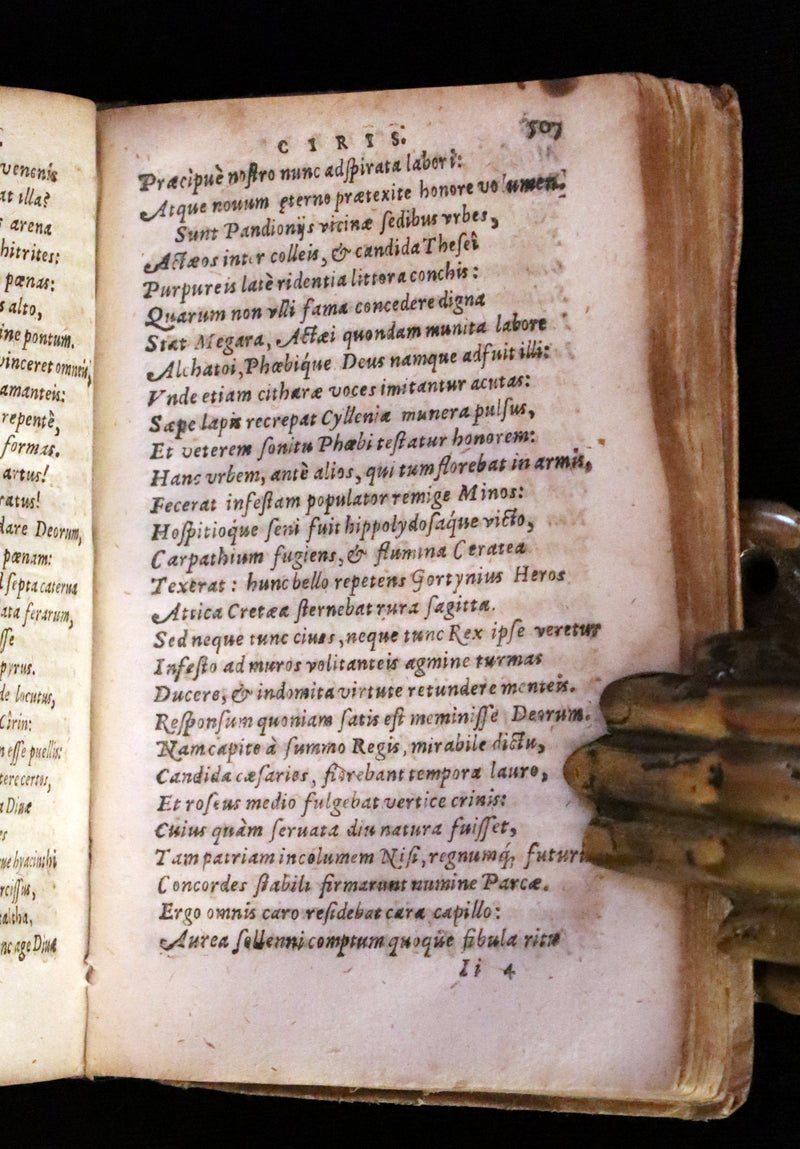 venenis
at illa?
arena
hitrites:
pœnas:
s alto,
ine pontum.
vinceret omneis,
amanteis:
repentè,
formas.
artus!
ratus!
dare Deorum,
pœnam:
septa caterua
ata ferarum,
sse
pyrus.
de locutus,
Cirin:
esse puellis:
tere certus,
Diuæ
es
ue hyacinthi
rcissus,
altha,
nc age Diuæ
CIRIS. 507
Præcipuè nostro nunc adspirata labori:
Atque nouum ęterno prætexite honore volumen.
Sunt Pandionijs vicinæ sedibus vrbes,
Actæos inter colleis, & candida Thesei
Purpureis latè ridentia littora conchis:
Quarum non vlli fama concedere digna
Stat Megara, Actæi quondam munita labore
Alchatoi, Phœbique Deus namque adfuit illi:
Vnde etiam citharæ voces imitantur acutas:
Sæpe lapis recrepat Cylleniæ munera pulsus,
Et veterem sonitu Phœbi testatur honorem:
Hanc vrbem, antè alios, qui tum florebat in armis,
Fecerat infestam populator remige Minos:
Hospitioque seni fuit hippolydosaque victo,
Carpathium fugiens, & flumina Ceratea
Texerat: hunc bello repetens Gortynius Heros
Attica Cretæa sternebat rura sagitta.
Sed neque tunc ciues, neque tunc Rex ipse veretur
Infesto ad muros volitanteis agmine turmas
Ducere, & indomita virtute retundere menteis.
Responsum quoniam satis est meminisse Deorum.
Nam capite à summo Regis, mirabile dictu,
Candida cæsaries, florebant tempora lauro,
Et roseus medio fulgebat vertice crinis:
Cuius quàm seruata diu natura fuisset,
Tam patriam incolumem Nisi, regnumq́; futuri
Concordes stabili firmarunt numine Parcæ.
Ergo omnis caro residebat cura capillo:
Aurea sollenni comptum quoque fibula ritu
Ii 4